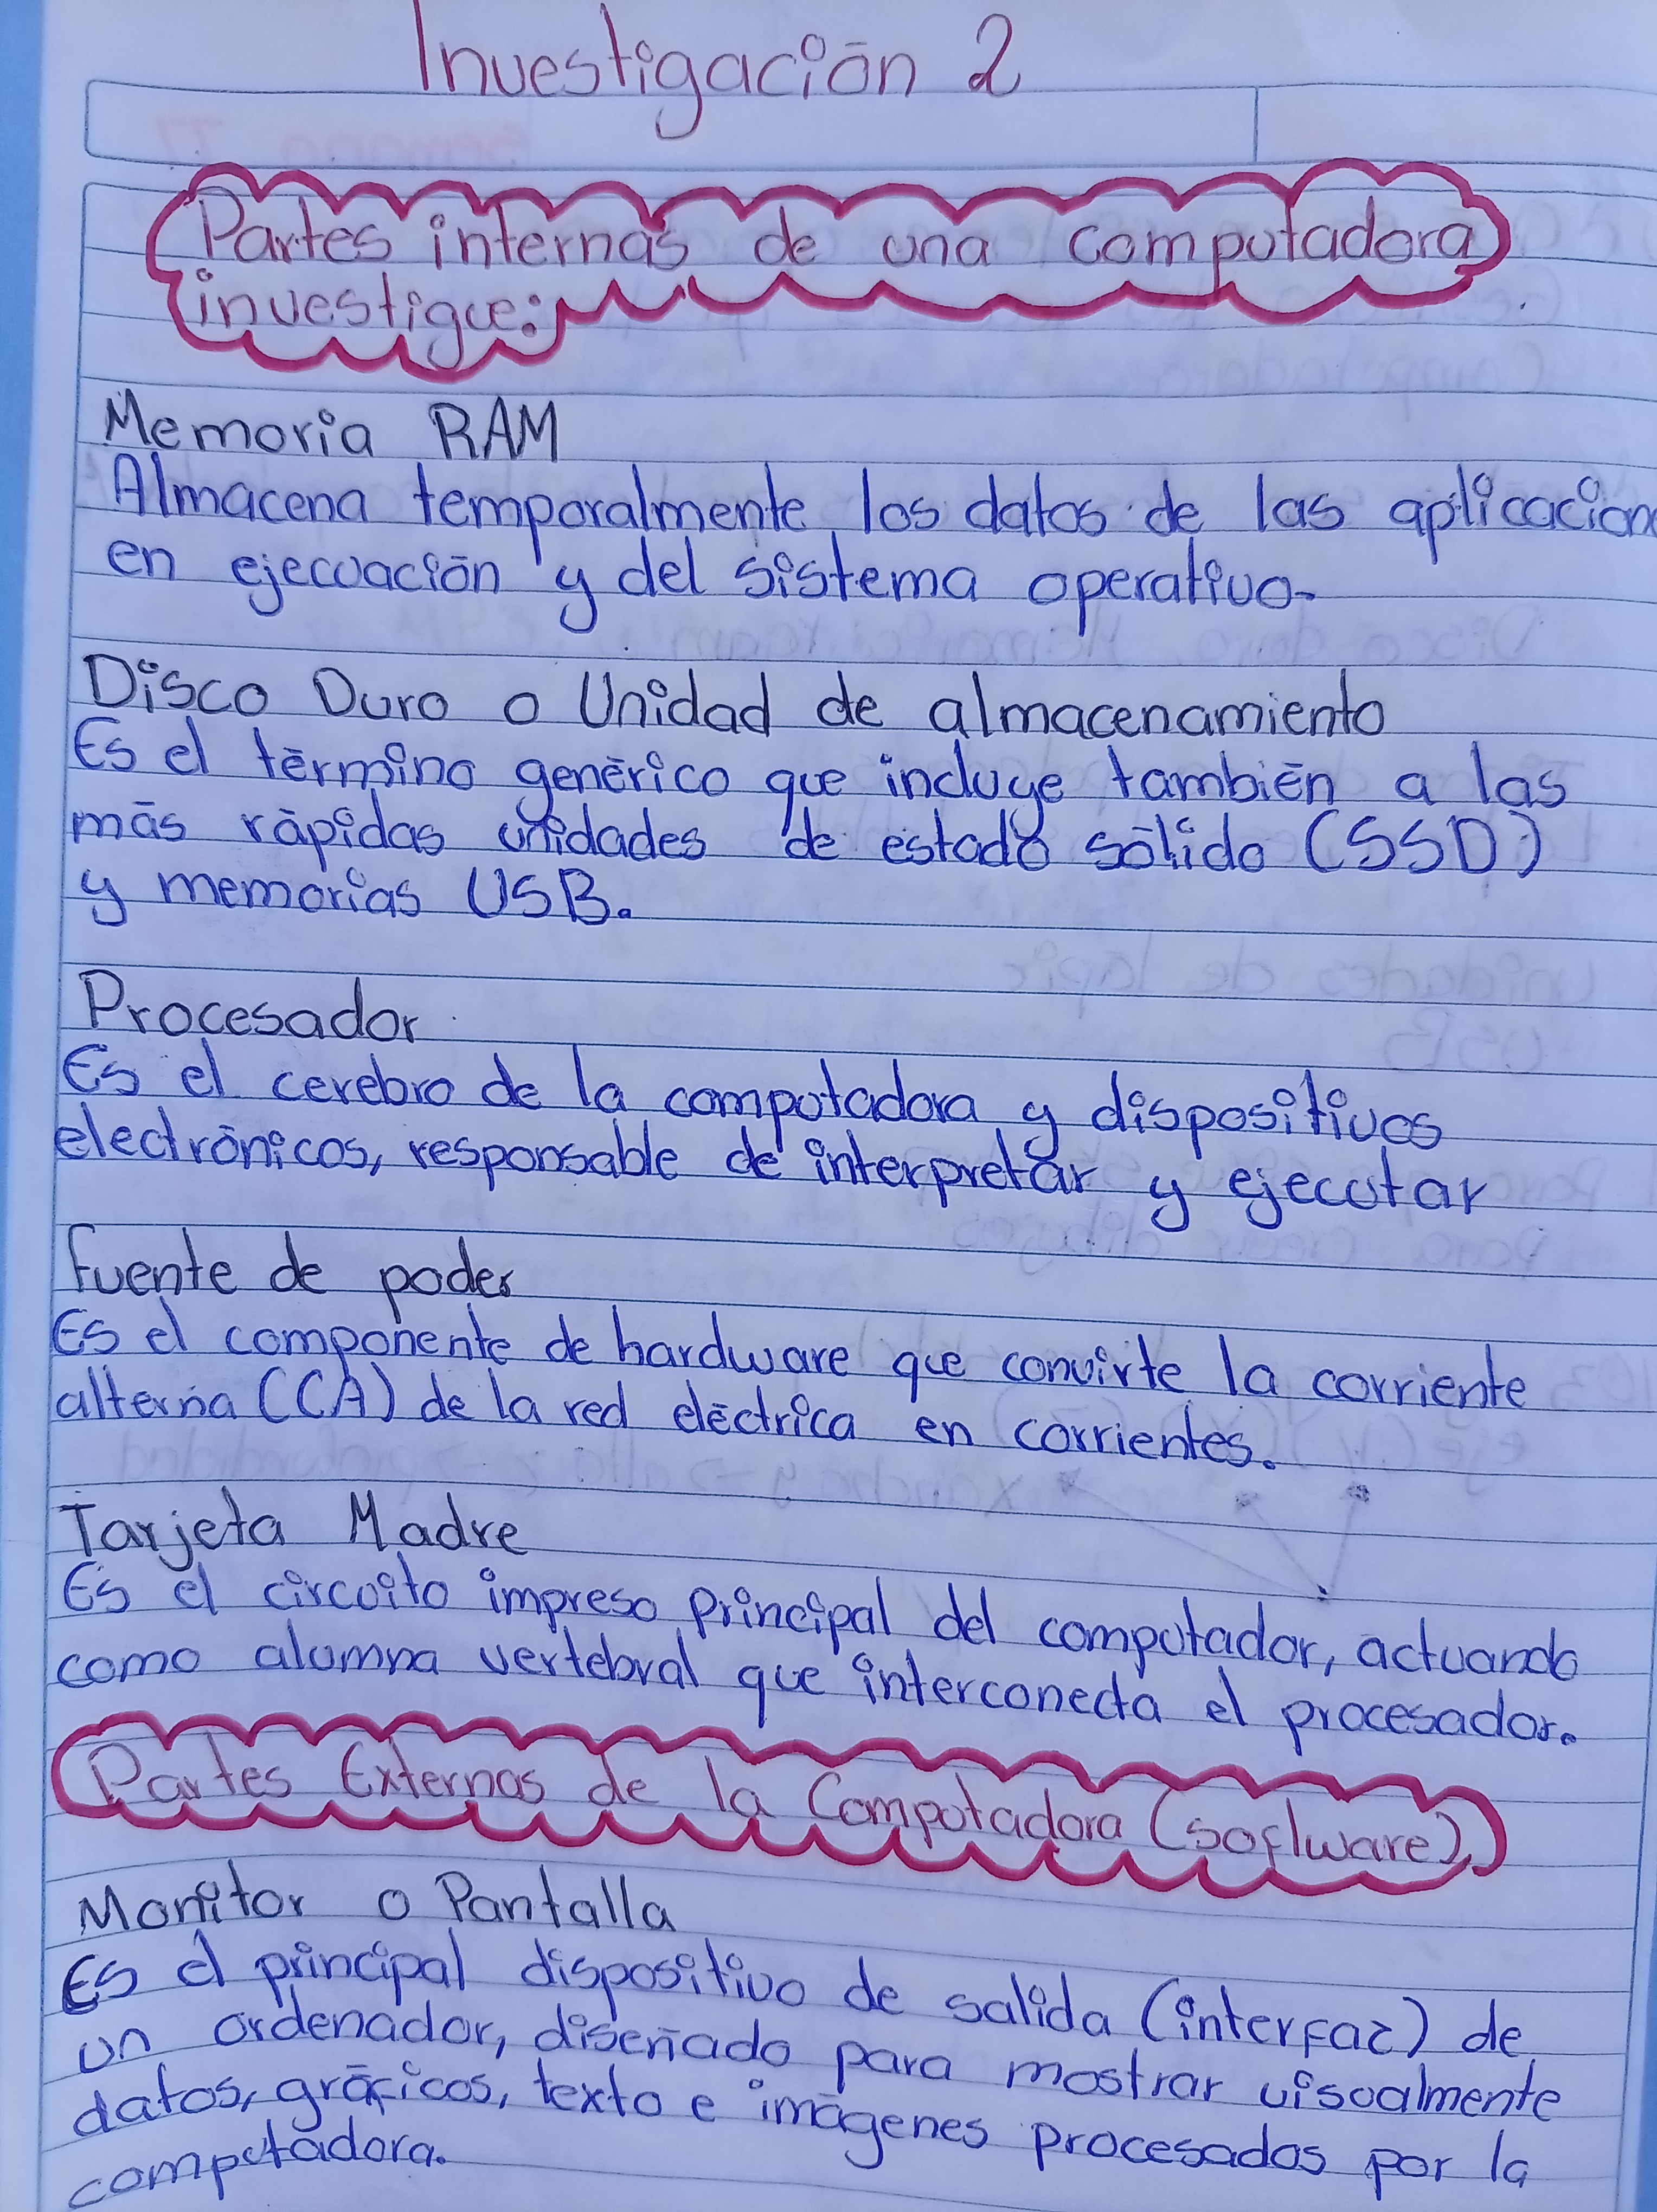 Investigación 2
Partes internas de una computadora
investigue:
Memoria RAM
Almacena temporalmente los datos de las aplicacion
en ejecuación y del sistema operativo.
Disco Duro o Unidad de almacenamiento
Es el término genérico que incluye también a las
más rápidas unidades de estado sólido (SSD)
y memorias USB.
Procesador
Es el cerebro de la computadora y dispositivos
electrónicos, responsable de interpretar y ejecutar
Fuente de poder
Es el componente de hardware que convirte la corriente
alterna (CA) de la red eléctrica en corrientes.
Tarjeta Madre
Es el circuito impreso principal del computador, actuando
como alumna vertebral que interconecta el procesador.
Partes Externas de la Computadora (soflware).
Monitor o Pantalla
Es el principal dispositivo de salida (interfaz) de
un ordenador, diseñado para mostrar visualmente
datos, gráficos, texto e imágenes procesados por la
computadora.